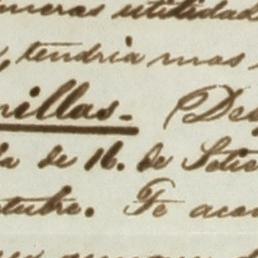 utilidad
, tendria mas
illas. (De
a de 16. de Setie
ctubre. Te acom